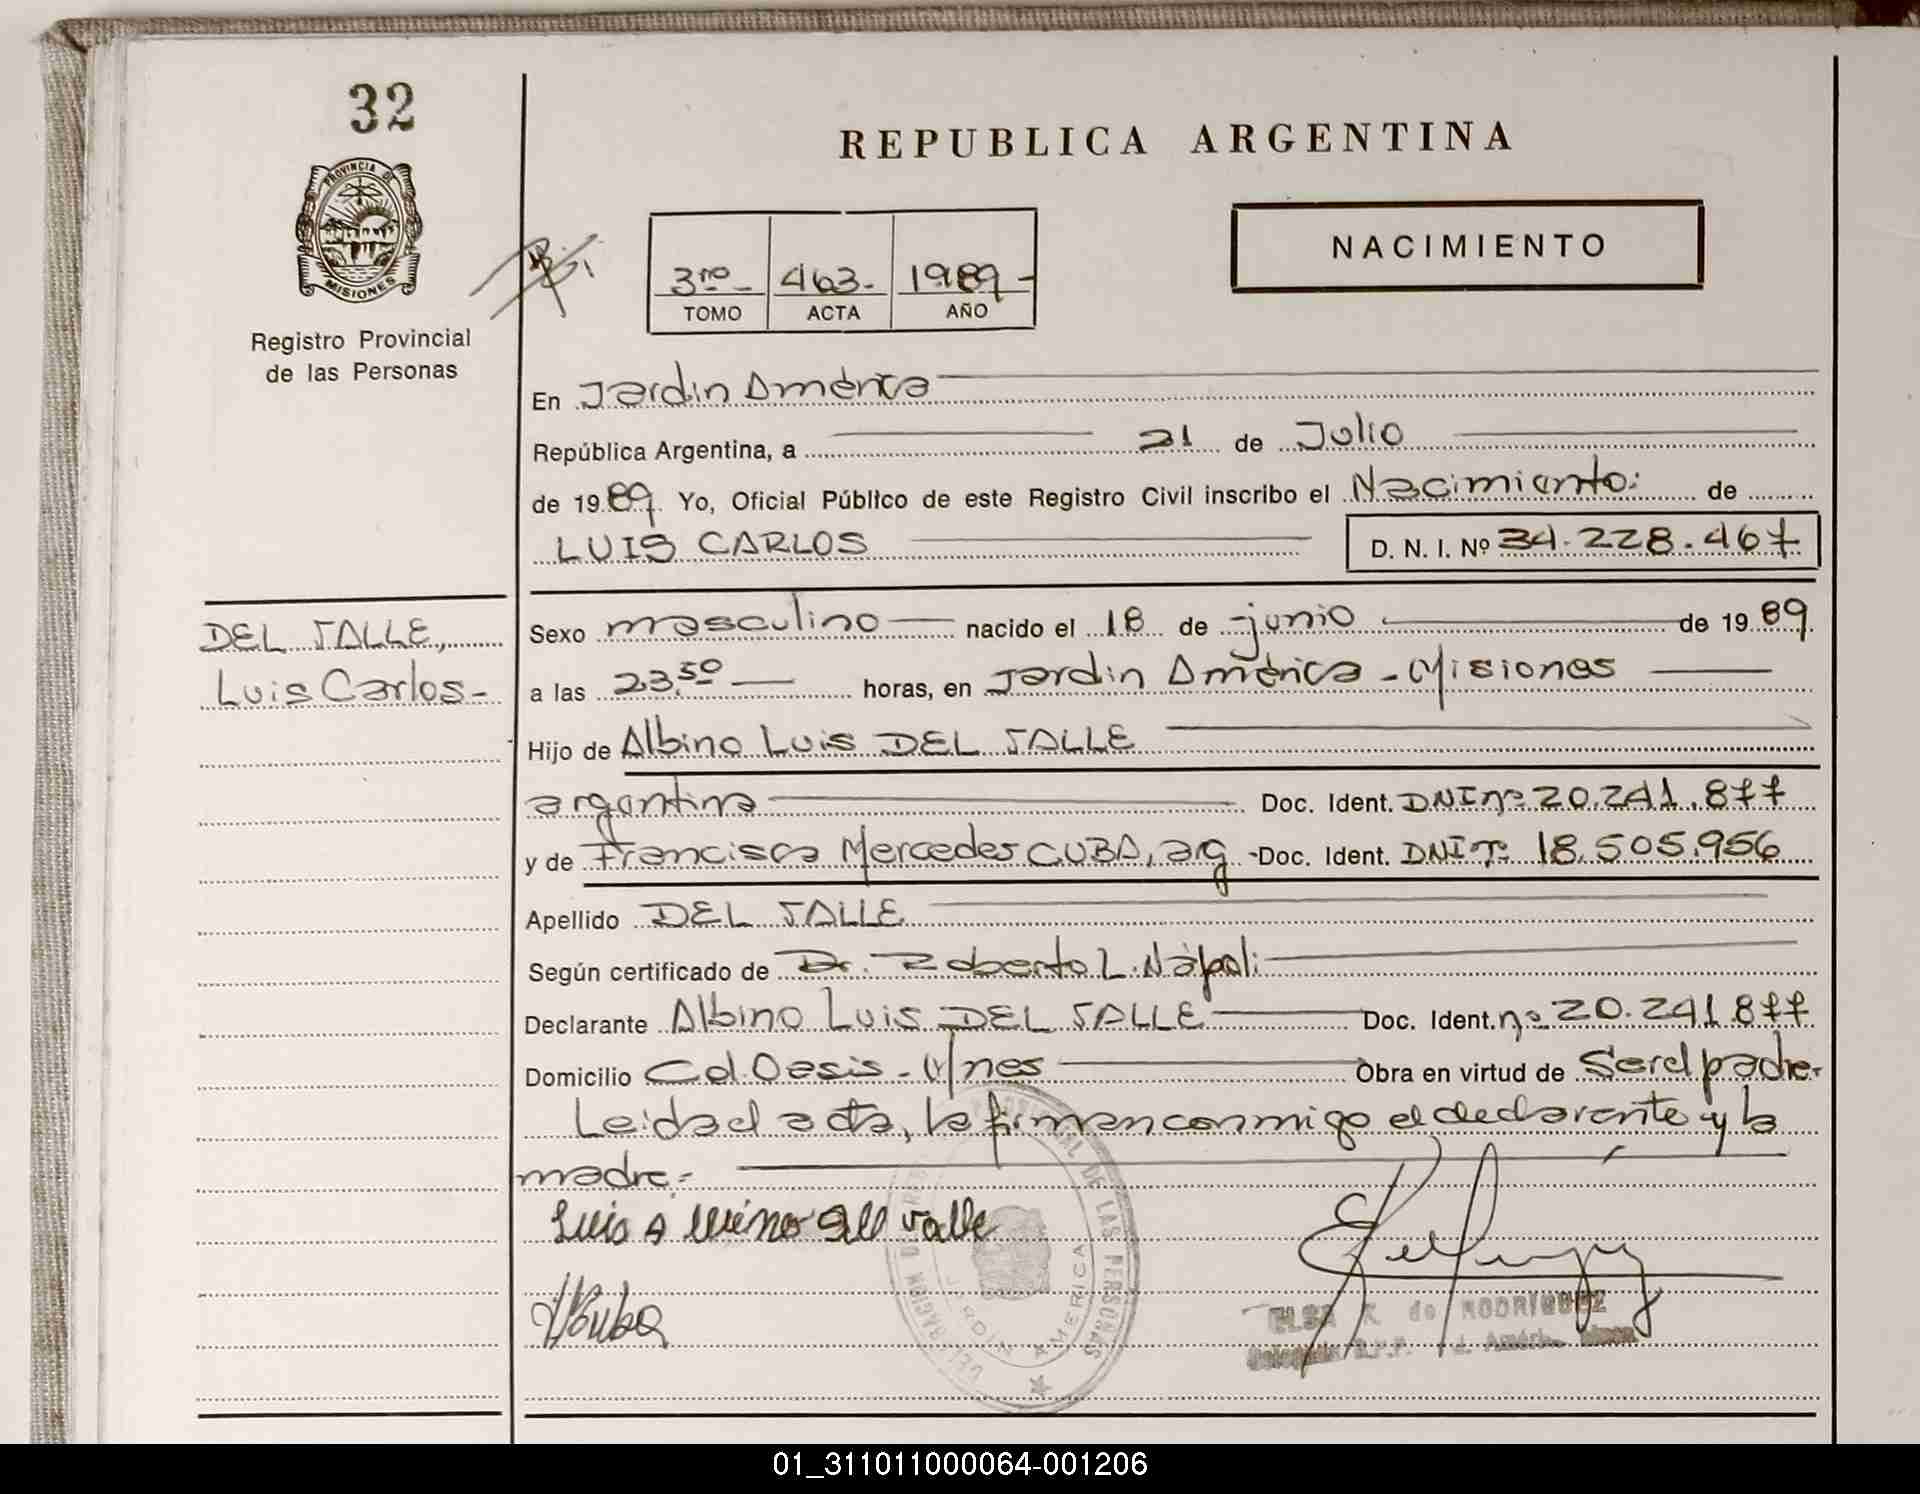 32
REPUBLICA ARGENTINA
PROVINCIA DE
MISIONES
Registro Provincial
de las Personas
NACIMIENTO
3ro - 463 - 1989 -
TOMO ACTA AÑO
En Jardin América
República Argentina, a 21 de Julio
de 1989. Yo, Oficial Público de este Registro Civil inscribo el Nacimiento: de
LUIS CARLOS D. N. I. Nº 34.228.467
DEL VALLE,
Luis Carlos -
Sexo masculino nacido el 18 de junio de 1989.
a las 23,50 horas, en Jardin América - Misiones
Hijo de Albino Luis DEL VALLE
argentina Doc. Ident. DNI nº 20.241.877
y de Francisca Mercedes CUBA, arg - Doc. Ident. DNI nº 18.505.956
Apellido DEL VALLE
Según certificado de Dr. Roberto L. Nápoli
Declarante Albino Luis DEL VALLE Doc. Ident. nº 20.241.877
Domicilio Col. Oasis - Mnes Obra en virtud de Ser el padre.
Leida el acta, la firman conmigo el declarante y la
madre.-
Luis Albino del valle
DELEGACION JARDIN AMERICA
DE LAS PERSONAS
ELSA de RODRÍGUEZ
01_311011000064-001206